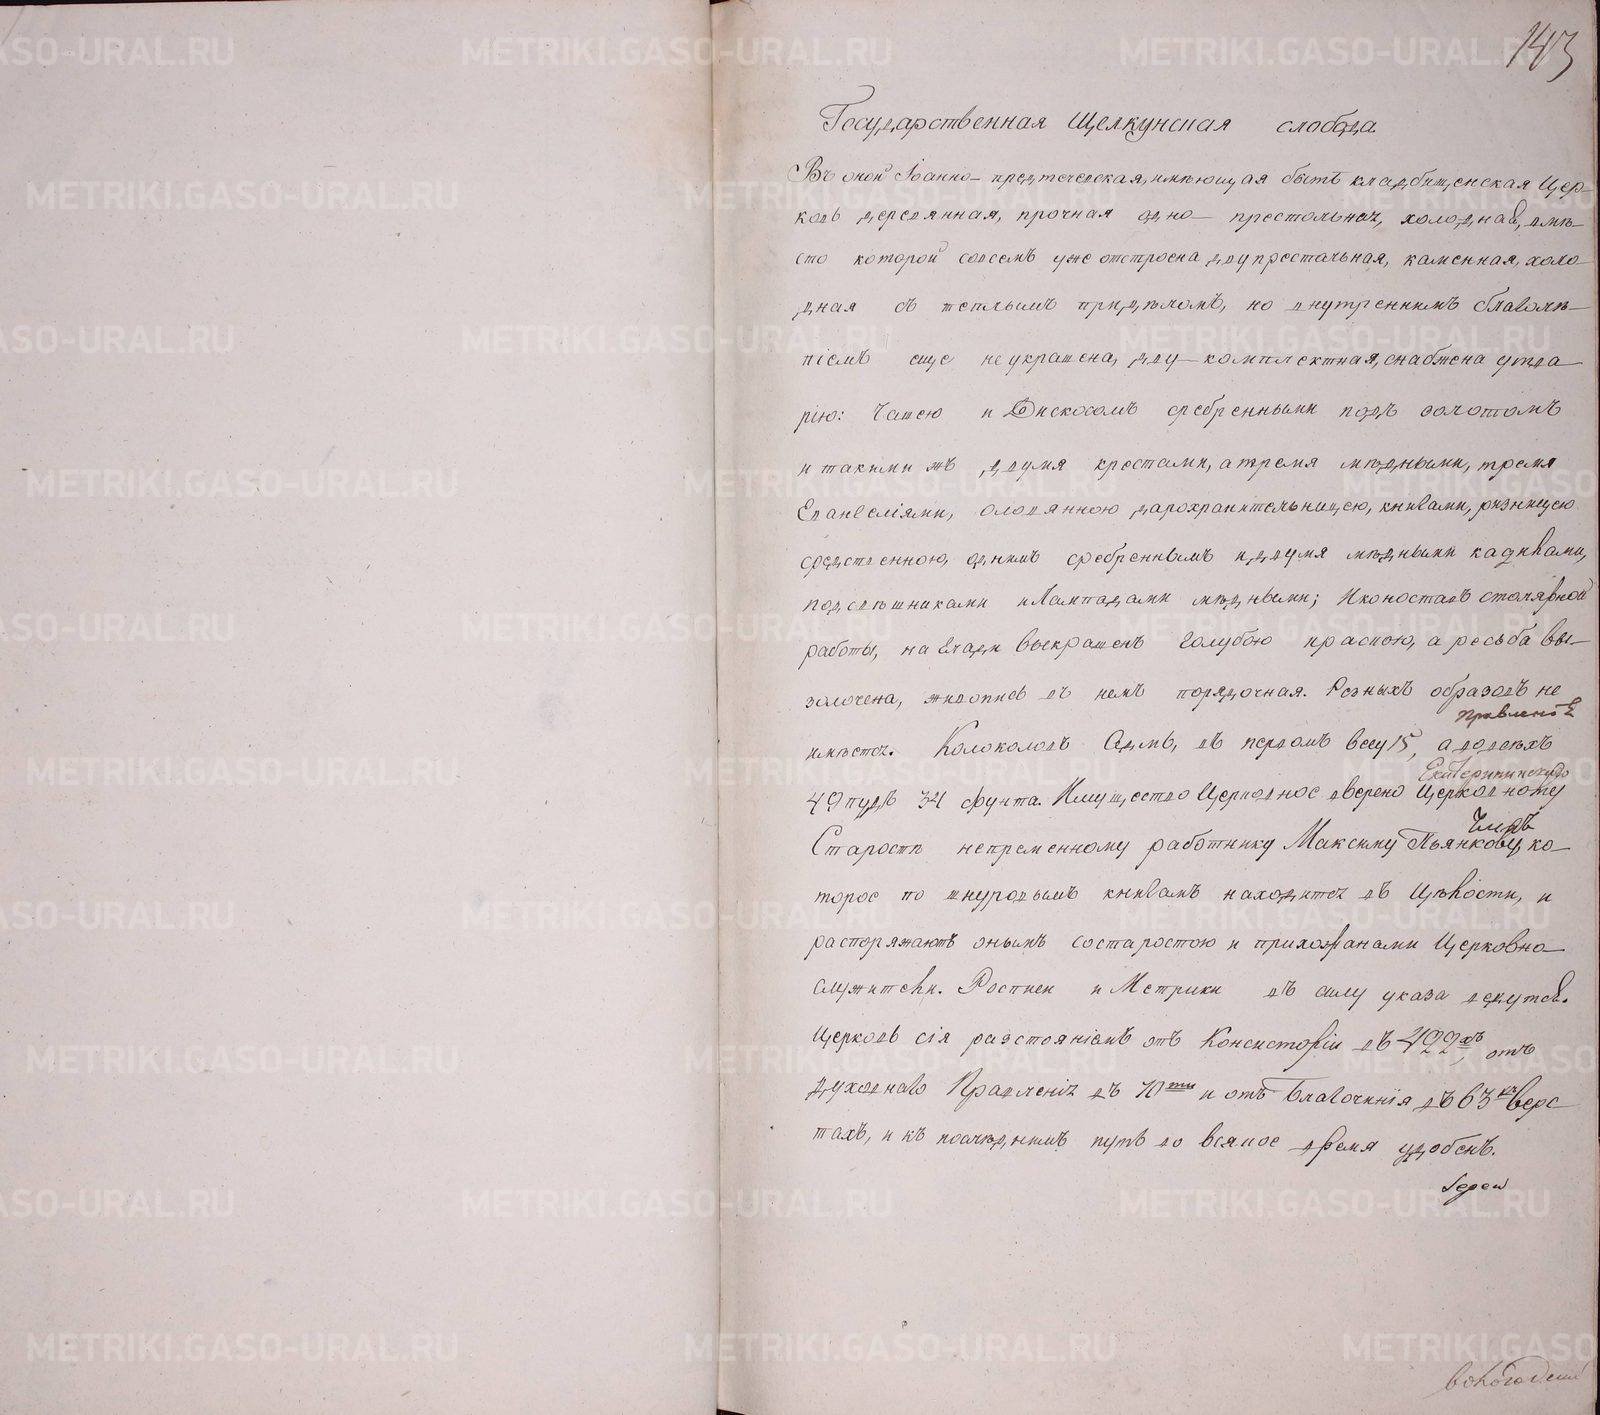 143
Государственная Щелкунская слобода
Въ оной Іоанно-предтечевская, имѣющая быть кладбищенская Цер-
ковь деревянная, прочная одно-престольная, холодная, вмѣ-
сто которой совсемъ уже отстроена двупрестольная, каменная, холо
дная съ теплымъ придѣломъ, но внутреннимъ благолѣ-
піемъ еще не украшена, дву-комплектная, снабжена утва
рію: Чашею и Дискосомъ сребренными подъ золотомъ
и такими жъ двумя крестами, а тремя мѣдными, тремя
Евангеліями, оловянною дарохранительницею, книгами, ризницею
средственною, однимъ сребреннымъ и двумя мѣдными кадилами,
подсвѣшниками и Лампадами мѣдными; Иконостасъ столярной
работы, на глади выкрашенъ голубою краскою, а резьба вы-
золочена, живопись въ немъ порядочная. Резныхъ образовъ не
имѣется. Колоколовъ седмь, въ первомъ весу 15, а во всѣхъ
49 пудъ 34 фунта. Имущество Церковное вверено Церковному
Старостѣ непременному работнику Максиму Пьянкову, ко-
торое по шнуровымъ книгамъ находится въ Цѣлости, и
распоряжаютъ онымъ со старостою и прихожанами Церковно-
служители. Росписи и Метрики въ силу указа ведутся.
Церковь сія разстояніемъ отъ Консисторіи въ 499хъ, отъ
духовнаго Правленія въ 70ти и отъ Благочинія въ 63хъ верс
тахъ, и къ послѣднимъ путь во всякое время удобенъ.
Іереи